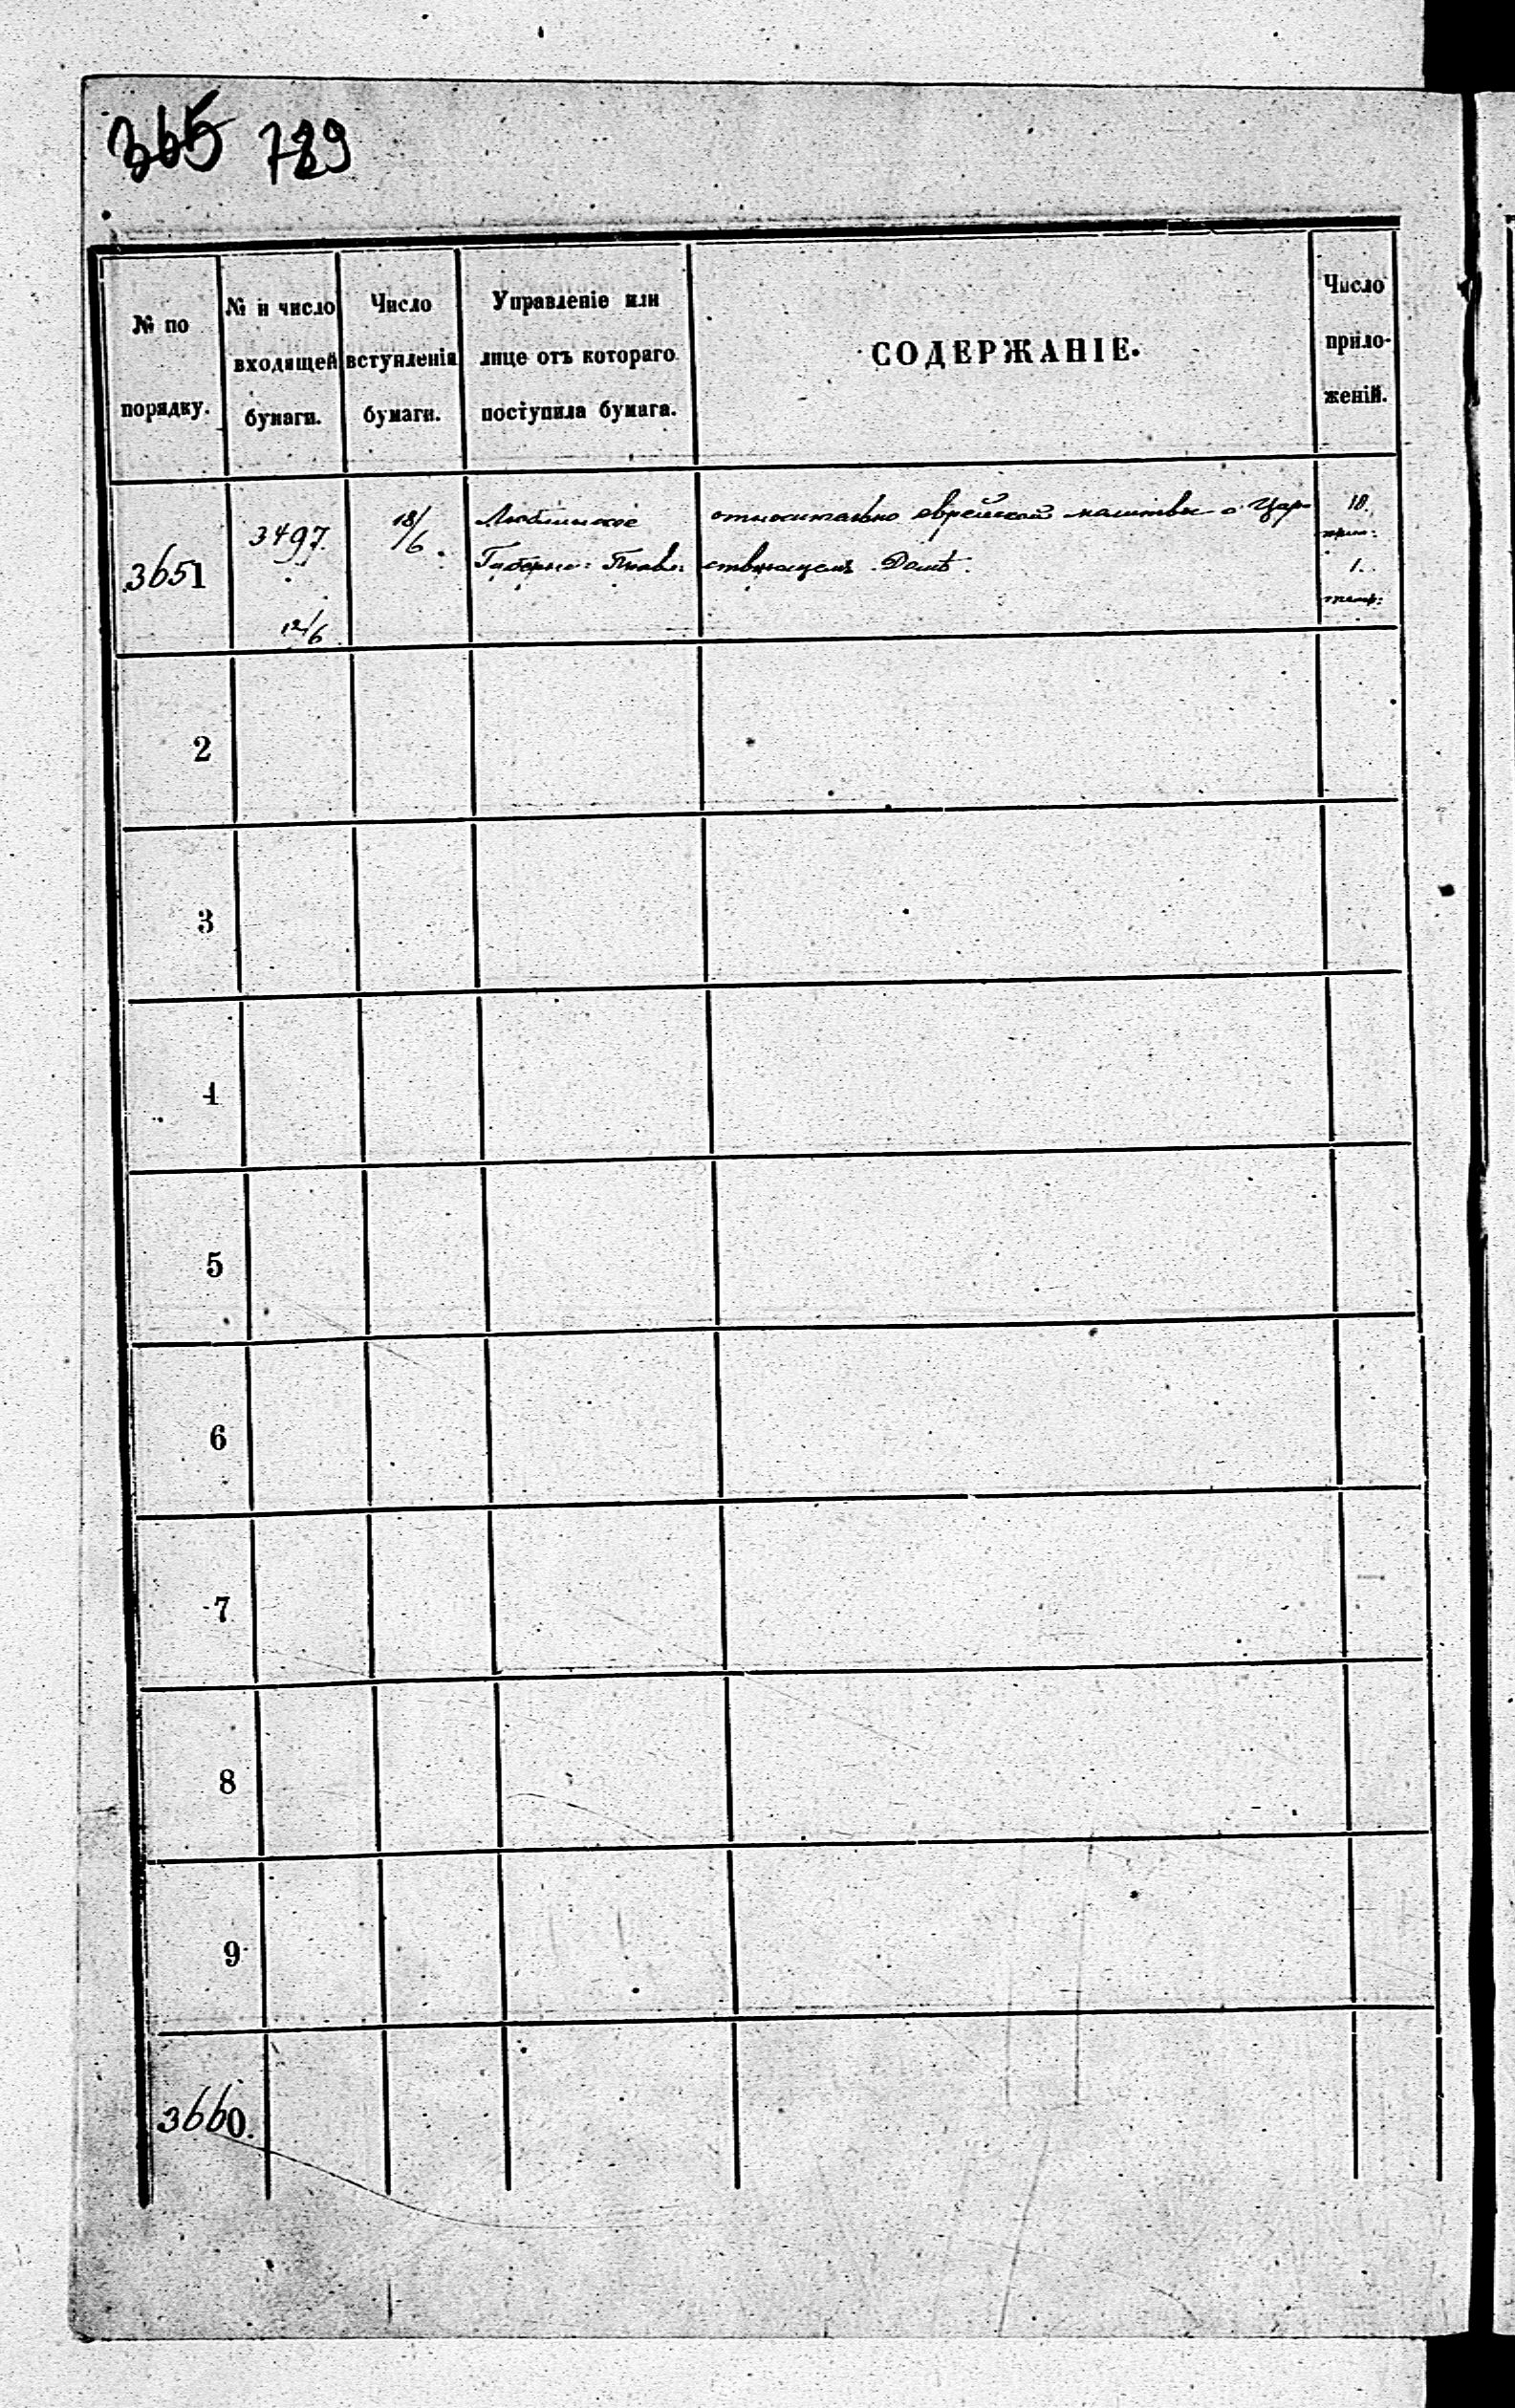 365 789
№ по
порядку.
№ и число
входящей
бумаги.
Число
вступленія
бумаги.
Управленіе или
лице отъ котораго
поступила бумага.
СОДЕРЖАНІЕ.
Число
прило-
женій.
3651
3497.
12/6
18/6.
Люблинское
Губернс: Правл:
относительно еврейской молитвы о Цар-
ствующемъ Домѣ.
18.
1.
2
3
4
5
6
7
8
9
3660.